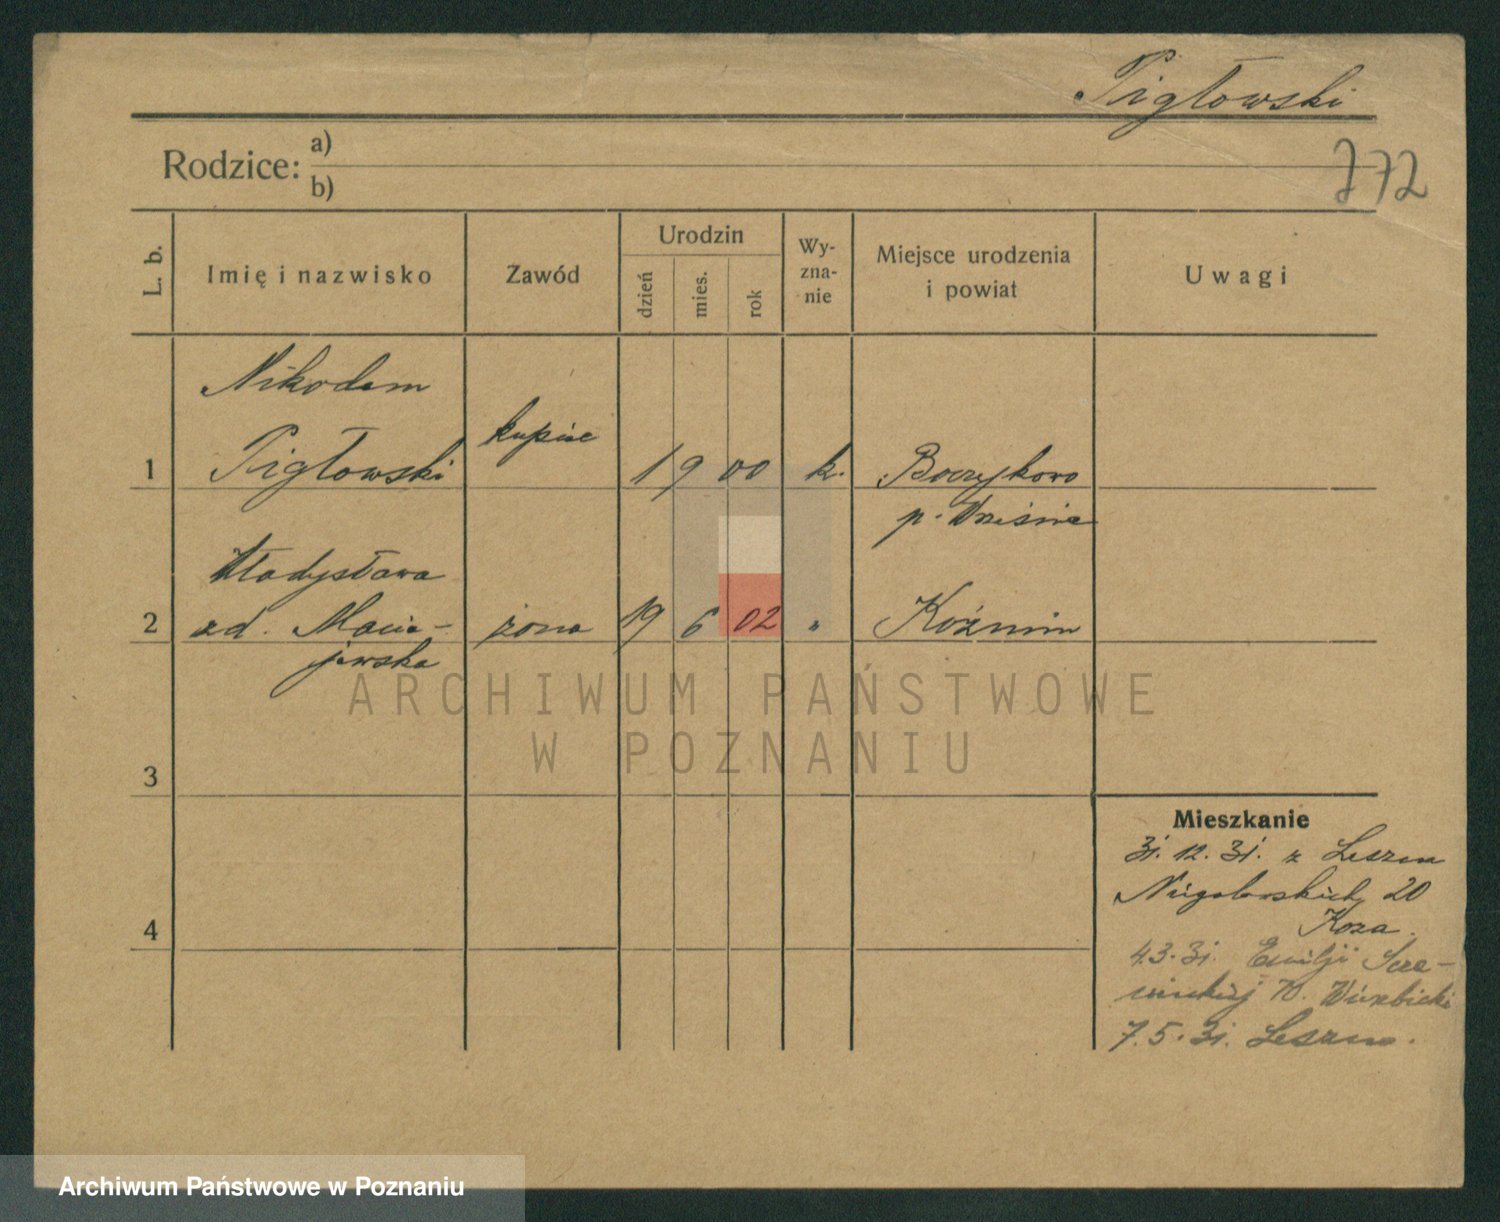 Pigłowski
772
Rodzice:
a)
b)
L. b.
Imię i nazwisko
Zawód
Urodzin
dzień
mies.
rok
Wy-
zna-
nie
Miejsce urodzenia
i powiat
Uwagi
Nikodem
1 Pigłowski kupiec 1 9 00 k.
p. Września
Władysława
2 zd. Macie- żona 19 6 02 " Koźmin
jewska
3
4
Mieszkanie
31. 12. 31. z Leszna
20
Koza
4.3.31. Emilji Scza-
nieckiej Wierzbicki
7.5.31. Leszno.
ARCHIWUM PAŃSTWOWE
W POZNANIU
Archiwum Państwowe w Poznaniu